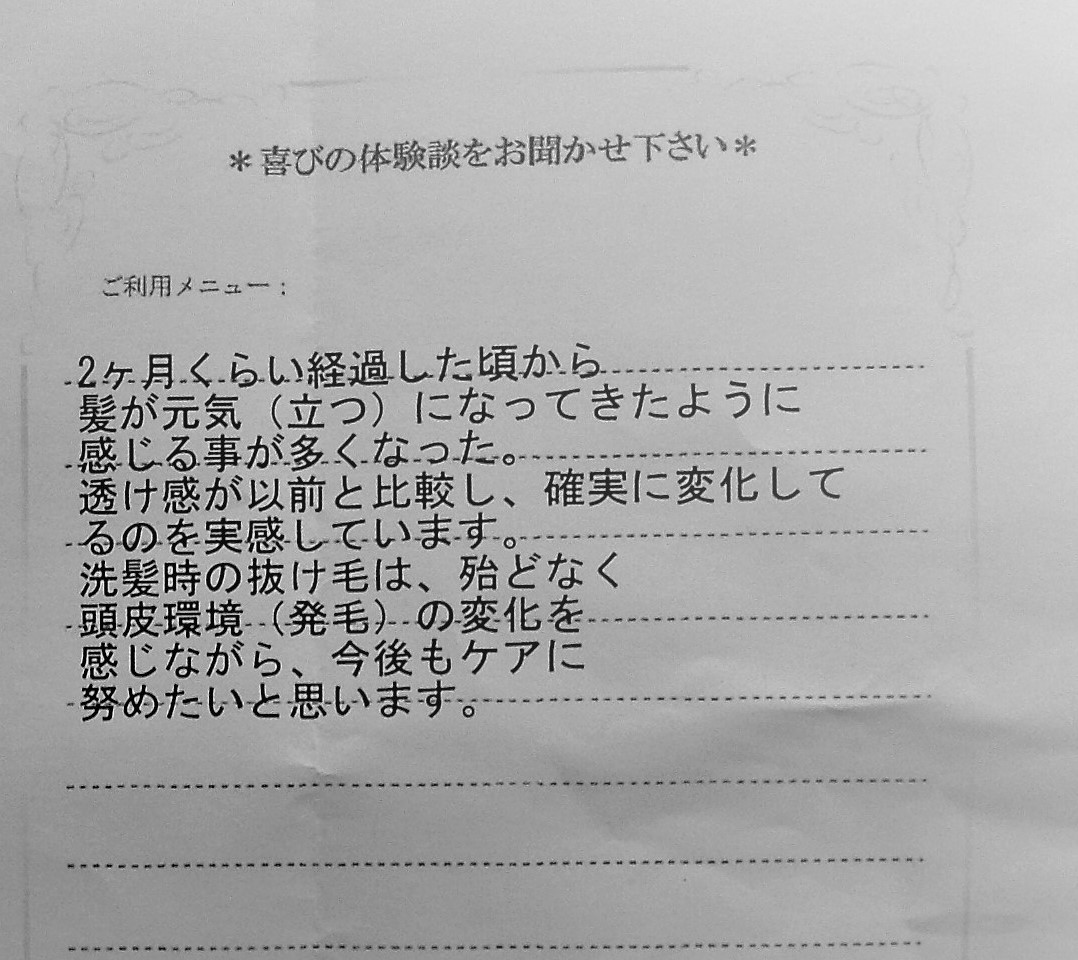 ＊喜びの体験談をお聞かせ下さい＊
ご利用メニュー：
2ヶ月くらい経過した頃から
髪が元気（立つ）になってきたように
感じる事が多くなった。
透け感が以前と比較し、確実に変化して
るのを実感しています。
洗髪時の抜け毛は、殆どなく
頭皮環境（発毛）の変化を
感じながら、今後もケアに
努めたいと思います。